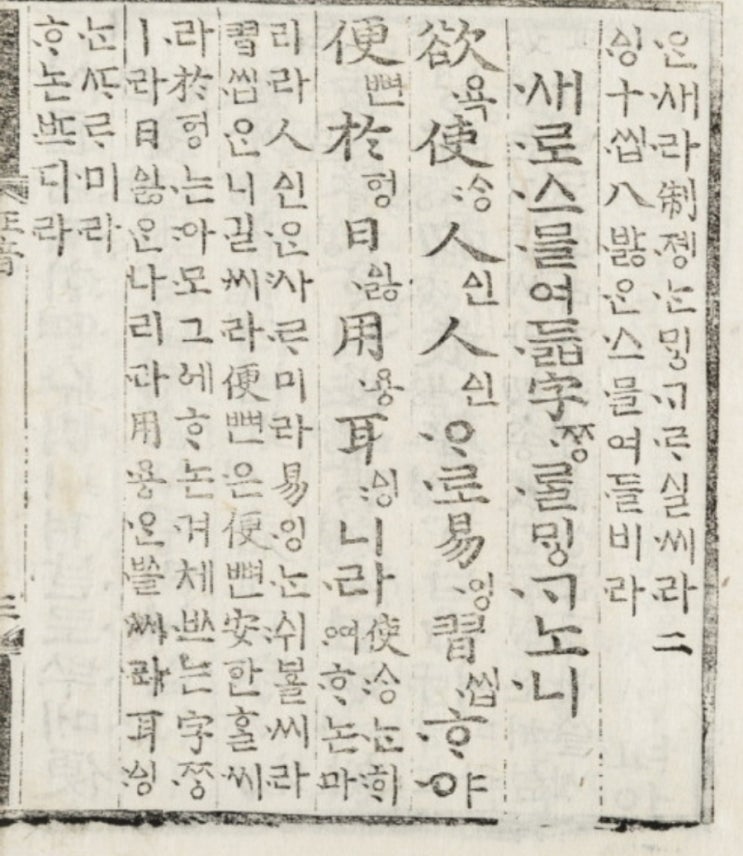 ·ᄋᆞᆫ·새·라制·졩·ᄂᆞᆫᄆᆡᇰ·ᄀᆞᄅᆞ실·씨·라二
·ᅀᅵᆼ十·씹八·바ᇙ·ᄋᆞᆫ·스·믈여·들비·라
·새·로·스·믈여·듧字·ᄍᆞᆼ·ᄅᆞᆯᄆᆡᇰ·ᄀᆞ노·니
欲·욕使:ᄉᆞᆼ人ᅀᅵᆫ人ᅀᅵᆫ·ᄋᆞ·로易·잉習·씹·ᄒᆞ·야
便뼌於ᅙᅥᆼ日·ᅀᅵᇙ用·용耳:ᅀᅵᆼ니·라
使:ᄉᆞᆼ·ᄂᆞᆫ:ᄒᆡ
·여·ᄒᆞ논:마
리라人ᅀᅵᆫ·ᄋᆞᆫ:사·ᄅᆞ미·라易·잉·ᄂᆞᆫ:쉬ᄫᅳᆯ·씨·라
習·씹·은니·길·씨·라便뼌·은便뼌安ᅙᅡᆫᄒᆞᆯ·씨
·라於ᅙᅥᆼ·는:아·모그ᅌᅦ·ᄒᆞ논·겨체·ᄡᅳ·는字·ᄍᆞᆼ
ㅣ·라日·ᅀᅵᇙ·은·나리·라用·용·ᄋᆞᆫ·ᄡᅳᆯ·씨·라耳:ᅀᅵᆼ
·ᄂᆞᆫᄯᆞᄅᆞ·미·라
·ᄒᆞ논·ᄠᅳ디·라